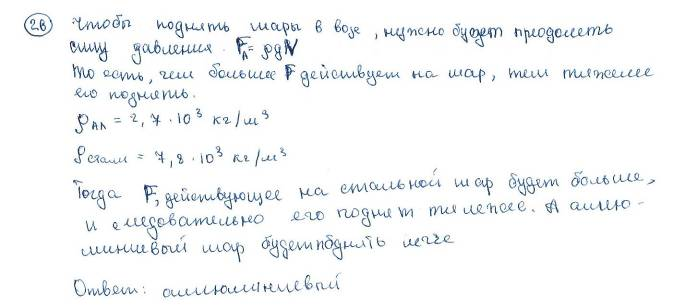 28 Чтобы поднять шары в воде, нужно будет преодолеть
силу давления. F_A = ρgV
То есть, чем больше F действует на шар, тем тяжелее
его поднять.
ρ_Ал = 2,7 · 10³ кг/м³
ρ_стали = 7,8 · 10³ кг/м³
Тогда F, действующее на стальной шар будет больше,
и следовательно его поднят тяжелее. А алю-
миниевый шар будет поднять легче
Ответ: алюминиевый